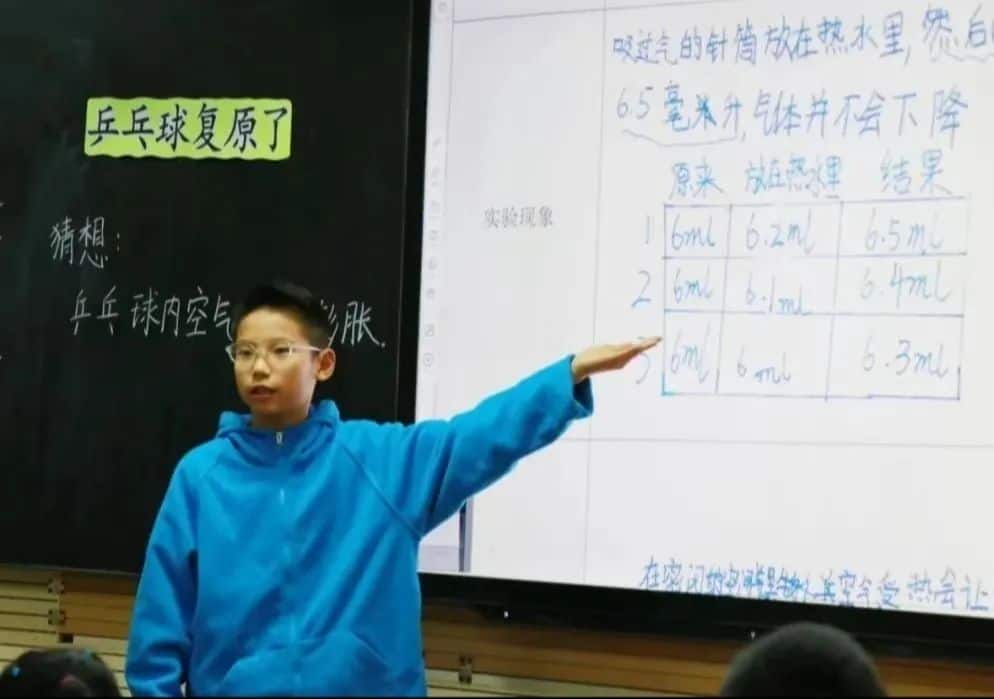 乒乓球复原了
猜想：
乒乓球内空气膨胀.
吸过气的针筒放在热水里,然后
6.5毫米升,气体并不会下降
原来 放在热水里 结果
实验现象
1 6ml 6.2ml 6.5ml
2 6ml 6.1ml 6.4ml
3 6ml 6ml 6.3ml
在密闭的 空气受热会让